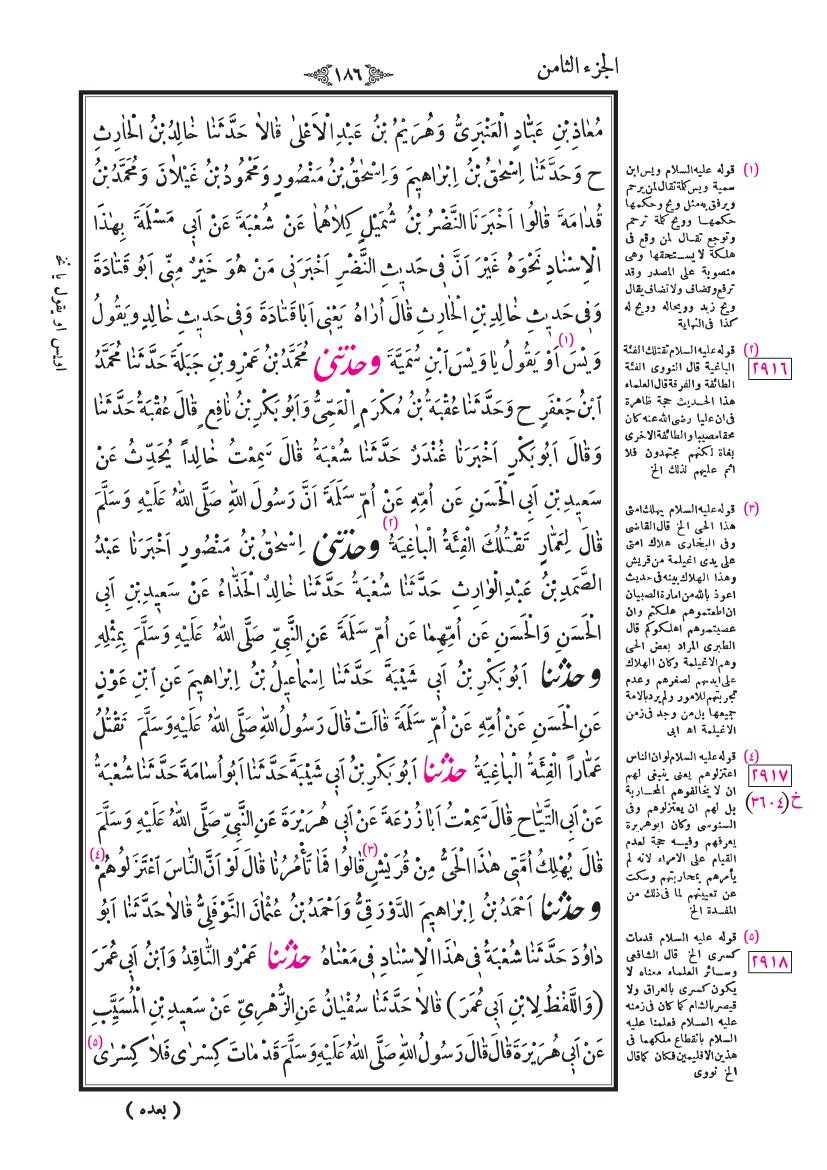 الجزء الثامن
١٨٦
مُعَاذِ بْنِ عَبَّادٍ الْعَنْبَرِىُّ وَهُرَيْمُ بْنُ عَبْدِ الْاَعْلىٰ قَالَا حَدَّثَنَا خَالِدُ بْنُ الْحَارِثِ
ح وَحَدَّثَنَا اِسْحٰقُ بْنُ اِبْرَاهِيمَ وَاِسْحٰقُ بْنُ مَنْصُورٍ وَمَحْمُودُ بْنُ غَيْلَانَ وَمُحَمَّدُ بْنُ
قُدَامَةَ قَالُوا اَخْبَرَنَا النَّضْرُ بْنُ شُمَيْلٍ كِلَاهُمَا عَنْ شُعْبَةَ عَنْ اَبِى مَسْلَمَةَ بِهٰذَا
الْاِسْنَادِ نَحْوَهُ غَيْرَ اَنَّ فِى حَدِيثِ النَّضْرِ اَخْبَرَنِى مَنْ هُوَ خَيْرٌ مِنِّى اَبُو قَتَادَةَ
وَفِى حَدِيثِ خَالِدِ بْنِ الْحَارِثِ قَالَ اُرَاهُ يَعْنِى اَبَا قَتَادَةَ وَفِى حَدِيثِ خَالِدٍ وَيَقُولُ
وَيْسَ (١) اَوْ يَقُولُ يَا وَيْسَ ابْنِ سُمَيَّةَ وحدثنى مُحَمَّدُ بْنُ عَمْرِو بْنِ جَبَلَةَ حَدَّثَنَا مُحَمَّدُ
ابْنُ جَعْفَرٍ ح وَحَدَّثَنَا عُقْبَةُ بْنُ مُكْرَمٍ الْعَمِّىُّ وَاَبُو بَكْرِ بْنُ نَافِعٍ قَالَ عُقْبَةُ حَدَّثَنَا
وَقَالَ اَبُو بَكْرٍ اَخْبَرَنَا غُنْدَرٌ حَدَّثَنَا شُعْبَةُ قَالَ سَمِعْتُ خَالِداً يُحَدِّثُ عَنْ
سَعِيدِ بْنِ اَبِى الْحَسَنِ عَنْ اُمِّهِ عَنْ اُمِّ سَلَمَةَ اَنَّ رَسُولَ اللهِ صَلَّى اللهُ عَلَيْهِ وَسَلَّمَ
قَالَ لِعَمَّارٍ تَقْتُلُكَ الْفِئَةُ الْبَاغِيَةُ (٢) وحدثنى اِسْحٰقُ بْنُ مَنْصُورٍ اَخْبَرَنَا عَبْدُ
الصَّمَدِ بْنُ عَبْدِ الْوَارِثِ حَدَّثَنَا شُعْبَةُ حَدَّثَنَا خَالِدٌ الْحَذَّاءُ عَنْ سَعِيدِ بْنِ اَبِى
الْحَسَنِ وَالْحَسَنِ عَنْ اُمِّهِمَا عَنْ اُمِّ سَلَمَةَ عَنِ النَّبِىِّ صَلَّى اللهُ عَلَيْهِ وَسَلَّمَ بِمِثْلِهِ
وحدثنا اَبُو بَكْرِ بْنُ اَبِى شَيْبَةَ حَدَّثَنَا اِسْمَاعِيلُ بْنُ اِبْرَاهِيمَ عَنِ ابْنِ عَوْنٍ
عَنِ الْحَسَنِ عَنْ اُمِّهِ عَنْ اُمِّ سَلَمَةَ قَالَتْ قَالَ رَسُولُ اللهِ صَلَّى اللهُ عَلَيْهِ وَسَلَّمَ تَقْتُلُ
عَمَّاراً الْفِئَةُ الْبَاغِيَةُ حدثنا اَبُو بَكْرِ بْنُ اَبِى شَيْبَةَ حَدَّثَنَا اَبُو اُسَامَةَ حَدَّثَنَا شُعْبَةُ
عَنْ اَبِى التَّيَّاحِ قَالَ سَمِعْتُ اَبَا زُرْعَةَ عَنْ اَبِى هُرَيْرَةَ عَنِ النَّبِىِّ صَلَّى اللهُ عَلَيْهِ وَسَلَّمَ
قَالَ يُهْلِكُ اُمَّتِى هٰذَا الْحَىُّ مِنْ قُرَيْشٍ (٣) قَالُوا فَمَا تَأْمُرُنَا قَالَ لَوْ اَنَّ النَّاسَ اعْتَزَلُوهُمْ (٤)
وحدثنا اَحْمَدُ بْنُ اِبْرَاهِيمَ الدَّوْرَقِىُّ وَاَحْمَدُ بْنُ عُثْمَانَ النَّوْفَلِىُّ قَالَا حَدَّثَنَا اَبُو
دَاوُدَ حَدَّثَنَا شُعْبَةُ فِى هٰذَا الْاِسْنَادِ فِى مَعْنَاهُ حدثنا عَمْرٌو النَّاقِدُ وَابْنُ اَبِى عُمَرَ
(وَاللَّفْظُ لِابْنِ اَبِى عُمَرَ) قَالَا حَدَّثَنَا سُفْيَانُ عَنِ الزُّهْرِىِّ عَنْ سَعِيدِ بْنِ الْمُسَيَّبِ
عَنْ اَبِى هُرَيْرَةَ قَالَ قَالَ رَسُولُ اللهِ صَلَّى اللهُ عَلَيْهِ وَسَلَّمَ قَدْ مَاتَ كِسْرٰى فَلَا كِسْرٰى (٥)
( بعده )
(١) قوله عليه السلام ويس ابن
سمية ويس كلة تقال لمن يرحم
ويرفق به مثل ويح وحكمها
حكمها وويح كلة ترحم
وتوجع تقال لمن وقع فى
هلكة لا يستحقها وهى
منصوبة على المصدر وقد
ترفع وتضاف ولا تضاف يقال
ويح زيد وويحا له وويح له
كذا فى النهاية
(٢) قوله عليه السلام تقتلك الفئة
٢٩١٦
الباغية قال النووى الفئة
الطائفة والفرقة قال العلماء
هذا الحديث حجة ظاهرة
فى ان عليا رضى الله عنه كان
محقا مصيبا والطائفة الاخرى
بغاة لكنهم مجتهدون فلا
اثم عليهم لذلك الخ
(٣) قوله عليه السلام يهلك امتى
هذا الحى الخ قال القاضى
وفى البخارى هلاك امتى
على يدى اغيلمة من قريش
وهذا الهلاك بينه فى حديث
اعوذ بالله من امارة الصبيان
ان اطعتموهم هلكتم وان
عصيتموهم اهلكوكم قال
الطبرى المراد بعض الحى
وهم الاغيلمة وكان الهلاك
على ايديهم لصغرهم وعدم
تجربتهم للامور ولم يرد بالامة
جميعها بل من وجد فى زمن
الاغيلمة اه ابى
(٤) قوله عليه السلام لو ان الناس
٢٩١٧
اعتزلوهم يعنى ينبغى لهم
ان لا يخالفوهم المحاربة
خ (٣٦٠٤)
بل لهم ان يعتزلوهم وفى
السنوسى وكان ابو هريرة
يعرفهم وفيه حجة لعدم
القيام على الامراء لانه لم
يأمرهم بمحاربتهم وسكت
عن تعيينهم لما فى ذلك من
المفسدة الخ
(٥) قوله عليه السلام قدمات
كسرى الخ قال الشافعى
٢٩١٨
وسائر العلماء معناه لا
يكون كسرى بالعراق ولا
قيصر بالشام كما كان فى زمنه
عليه السلام فعلمنا عليه
السلام بانقطاع ملكهما فى
هذين الاقليمين فكان كما قال
الخ نووى
اويس او يقول يا نخ